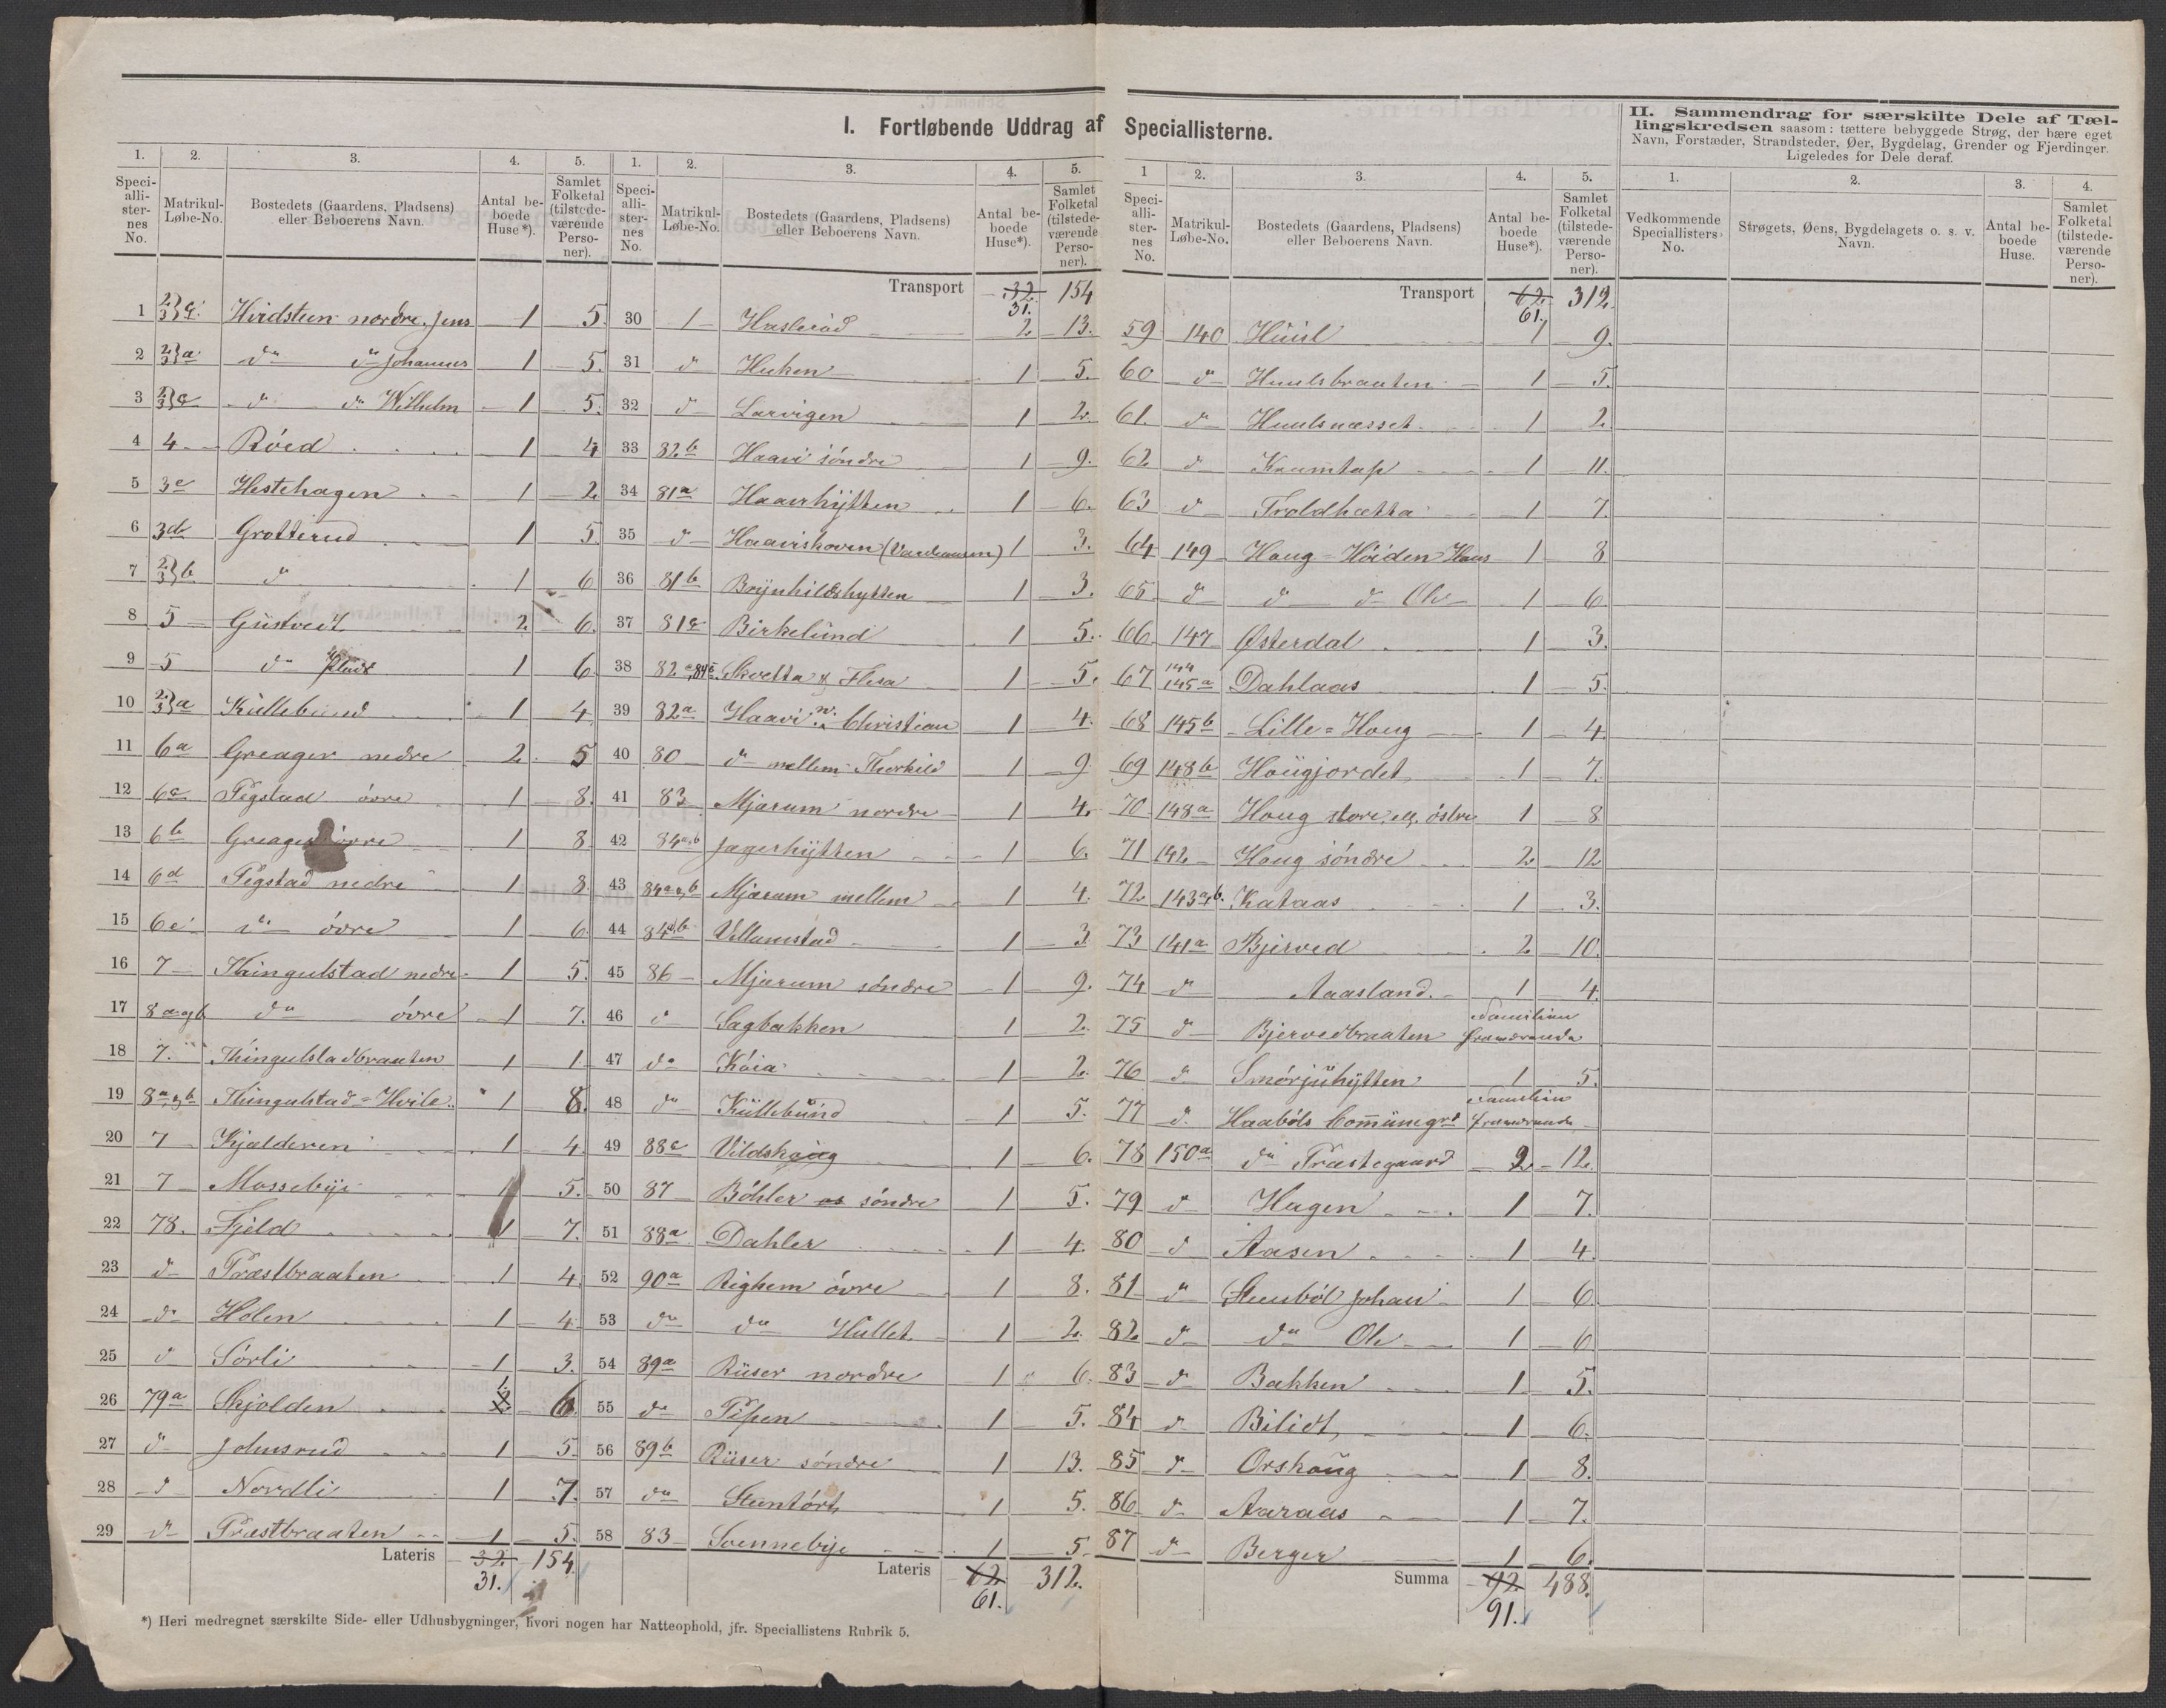 I. Fortløbende Uddrag af Speciallisterne.
II. Sammendrag for særskilte Dele af Tællingskredsen saasom: tættere bebyggede Strøg, der bære eget Navn, Forstæder, Strandsteder, Øer, Bygdelag, Grender og Fjerdinger. Ligeledes for Dele deraf.
1. 2. 3. 4. 5.
Speciallisternes No. Matrikul-Løbe-No. Bostedets (Gaardens, Pladsens) eller Beboerens Navn. Antal beboede Huse*). Samlet Folketal (tilstedeværende Personer).
1 2/3 c Hvidsteen nordre, Jens 1 5.
2 2/3 a do do Johannes 1 5.
3 2/3 c do do Wilhelm 1 5.
4 4 Röed 1 4
5 3e Hestehagen 1 2
6 3d Grotterud 1 5
7 2/3 b do 1 6
8 5 Gustvedt 2. 6.
9 5 do Plads 1 6
10 2/3 a Kullebund 1 4
11 6a Greager nedre 2 5
12 6c Pigstad övre 1 8.
13 6b Greager övre 1 8
14 6d Pigstad nedre 1 8.
15 6e do övre 1 6
16 7 Thingulstad nedre 1 5.
17 8a og b do övre 1 7.
18 7. Thingulstadbraaten 1 1.
19 8a og b Thingulstad=Hvile 1 8.
20 7 Kjalderen 1 4.
21 7 Mossebye 1 5.
22 78. Fjeld 1 7.
23 d Præstbraaten 1 4.
24 d Holen 1 4.
25 d Sörli 1 3.
26 79a Skjolden 1. 6
27 d Johnsrud 1 5.
28 d Nordli 1 7.
29 d Præstbraaten 1 5.
Lateris 32. 154.
31.
1. 2. 3. 4. 5.
Speciallisternes No. Matrikul-Løbe-No. Bostedets (Gaardens, Pladsens) eller Beboerens Navn. Antal beboede Huse*). Samlet Folketal (tilstedeværende Personer).
Transport 32. 154
31.
30 1 Haslerud 2. 13.
31 d Huken 1 5.
32 d Larvigen 1 2.
33 82b Haavi söndre 1 9.
34 81a Haavihytten 1 6.
35 d Haaviskoven 1 3.
36 81b Brynhildshytten 1 3.
37 81c Birkelund 1 5.
38 82 Skvetta & Flesa 1 5.
39 82a Haavi n. Christian 1 4.
40 80 do mellem Thorkild 1 9
41 83 Mjærum nordre 1 4.
42 84a,b Jagerhytten 1 6.
43 84a og b Mjærum mellem 1 4.
44 84a,b Villumstad 1 3
45 86 Mjærum söndre 1 9.
46 d Sagbakken 1 2.
47 do Köia 1 2.
48 do Kullebund 1 5.
49 88c Vildskaug 1 6.
50 87 Böhler söndre 1 5.
51 88a Dahler 1 4.
52 90a Righem övre 1 8.
53 do do Hullet 1 2.
54 89a Ruser nordre 1 6.
55 do Pipen 1 5.
56 89b Ruser söndre 1 13.
57 do Stentört 1 5.
58 83 Svennebye 1 5
Lateris 62. 312.
61.
1 2. 3. 4. 5.
Speciallisternes No. Matrikul-Løbe-No. Bostedets (Gaardens, Pladsens) eller Beboerens Navn. Antal beboede Huse*). Samlet Folketal (tilstedeværende Personer).
Transport 62. 312.
61.
59 140 Huusl 1 9.
60 d Huulsbraaten 1 5.
61. d Huulsnæsset 1 2
62 d Kaumtap 1 11.
63 d Troldhætta 1 7.
64 149 Haug=Höiden Hans 1 8
65 d d d Ole 1 6
66 147 Østerdal 1 3.
67 144 145a Dahlaas 1 5.
68 145b Lille=Haug 1 4.
69 148b Haugjordet 1 7.
70 148a Haug store, ell. östre 1 8
71 142 Haug söndre 2. 12
72 143a,b. Kataas 1 3.
73 141a Bjerved 2 10.
74 d Aasland. 1 4.
75 d Bjervedbraaten Familien fraværende
76 d Smörjuhytten 1 5.
77 d Haaböls Communegrd Familien fraværende
78 150a do Præstegaard 2. 12.
79 d Hagen 1 7.
80 d Aasen 1 4.
81 d Stenböl Johan 1 6.
82 d do Ole 1 6
83 d Bakken 1 5.
84 d Bilidt 1 6.
85 d Orskoug 1 8.
86 d Aaraas 1 7.
87 d Berger 1 6.
Summa 92. 488.
91.
1. 2. 3. 4.
Vedkommende Speciallisters No. Strøgets, Øens, Bygdelagets o. s. v. Navn. Antal beboede Huse. Samlet Folketal (tilstedeværende Personer).
*) Heri medregnet særskilte Side- eller Udhusbygninger, hvori nogen har Natteophold, jfr. Speciallistens Rubrik 5.